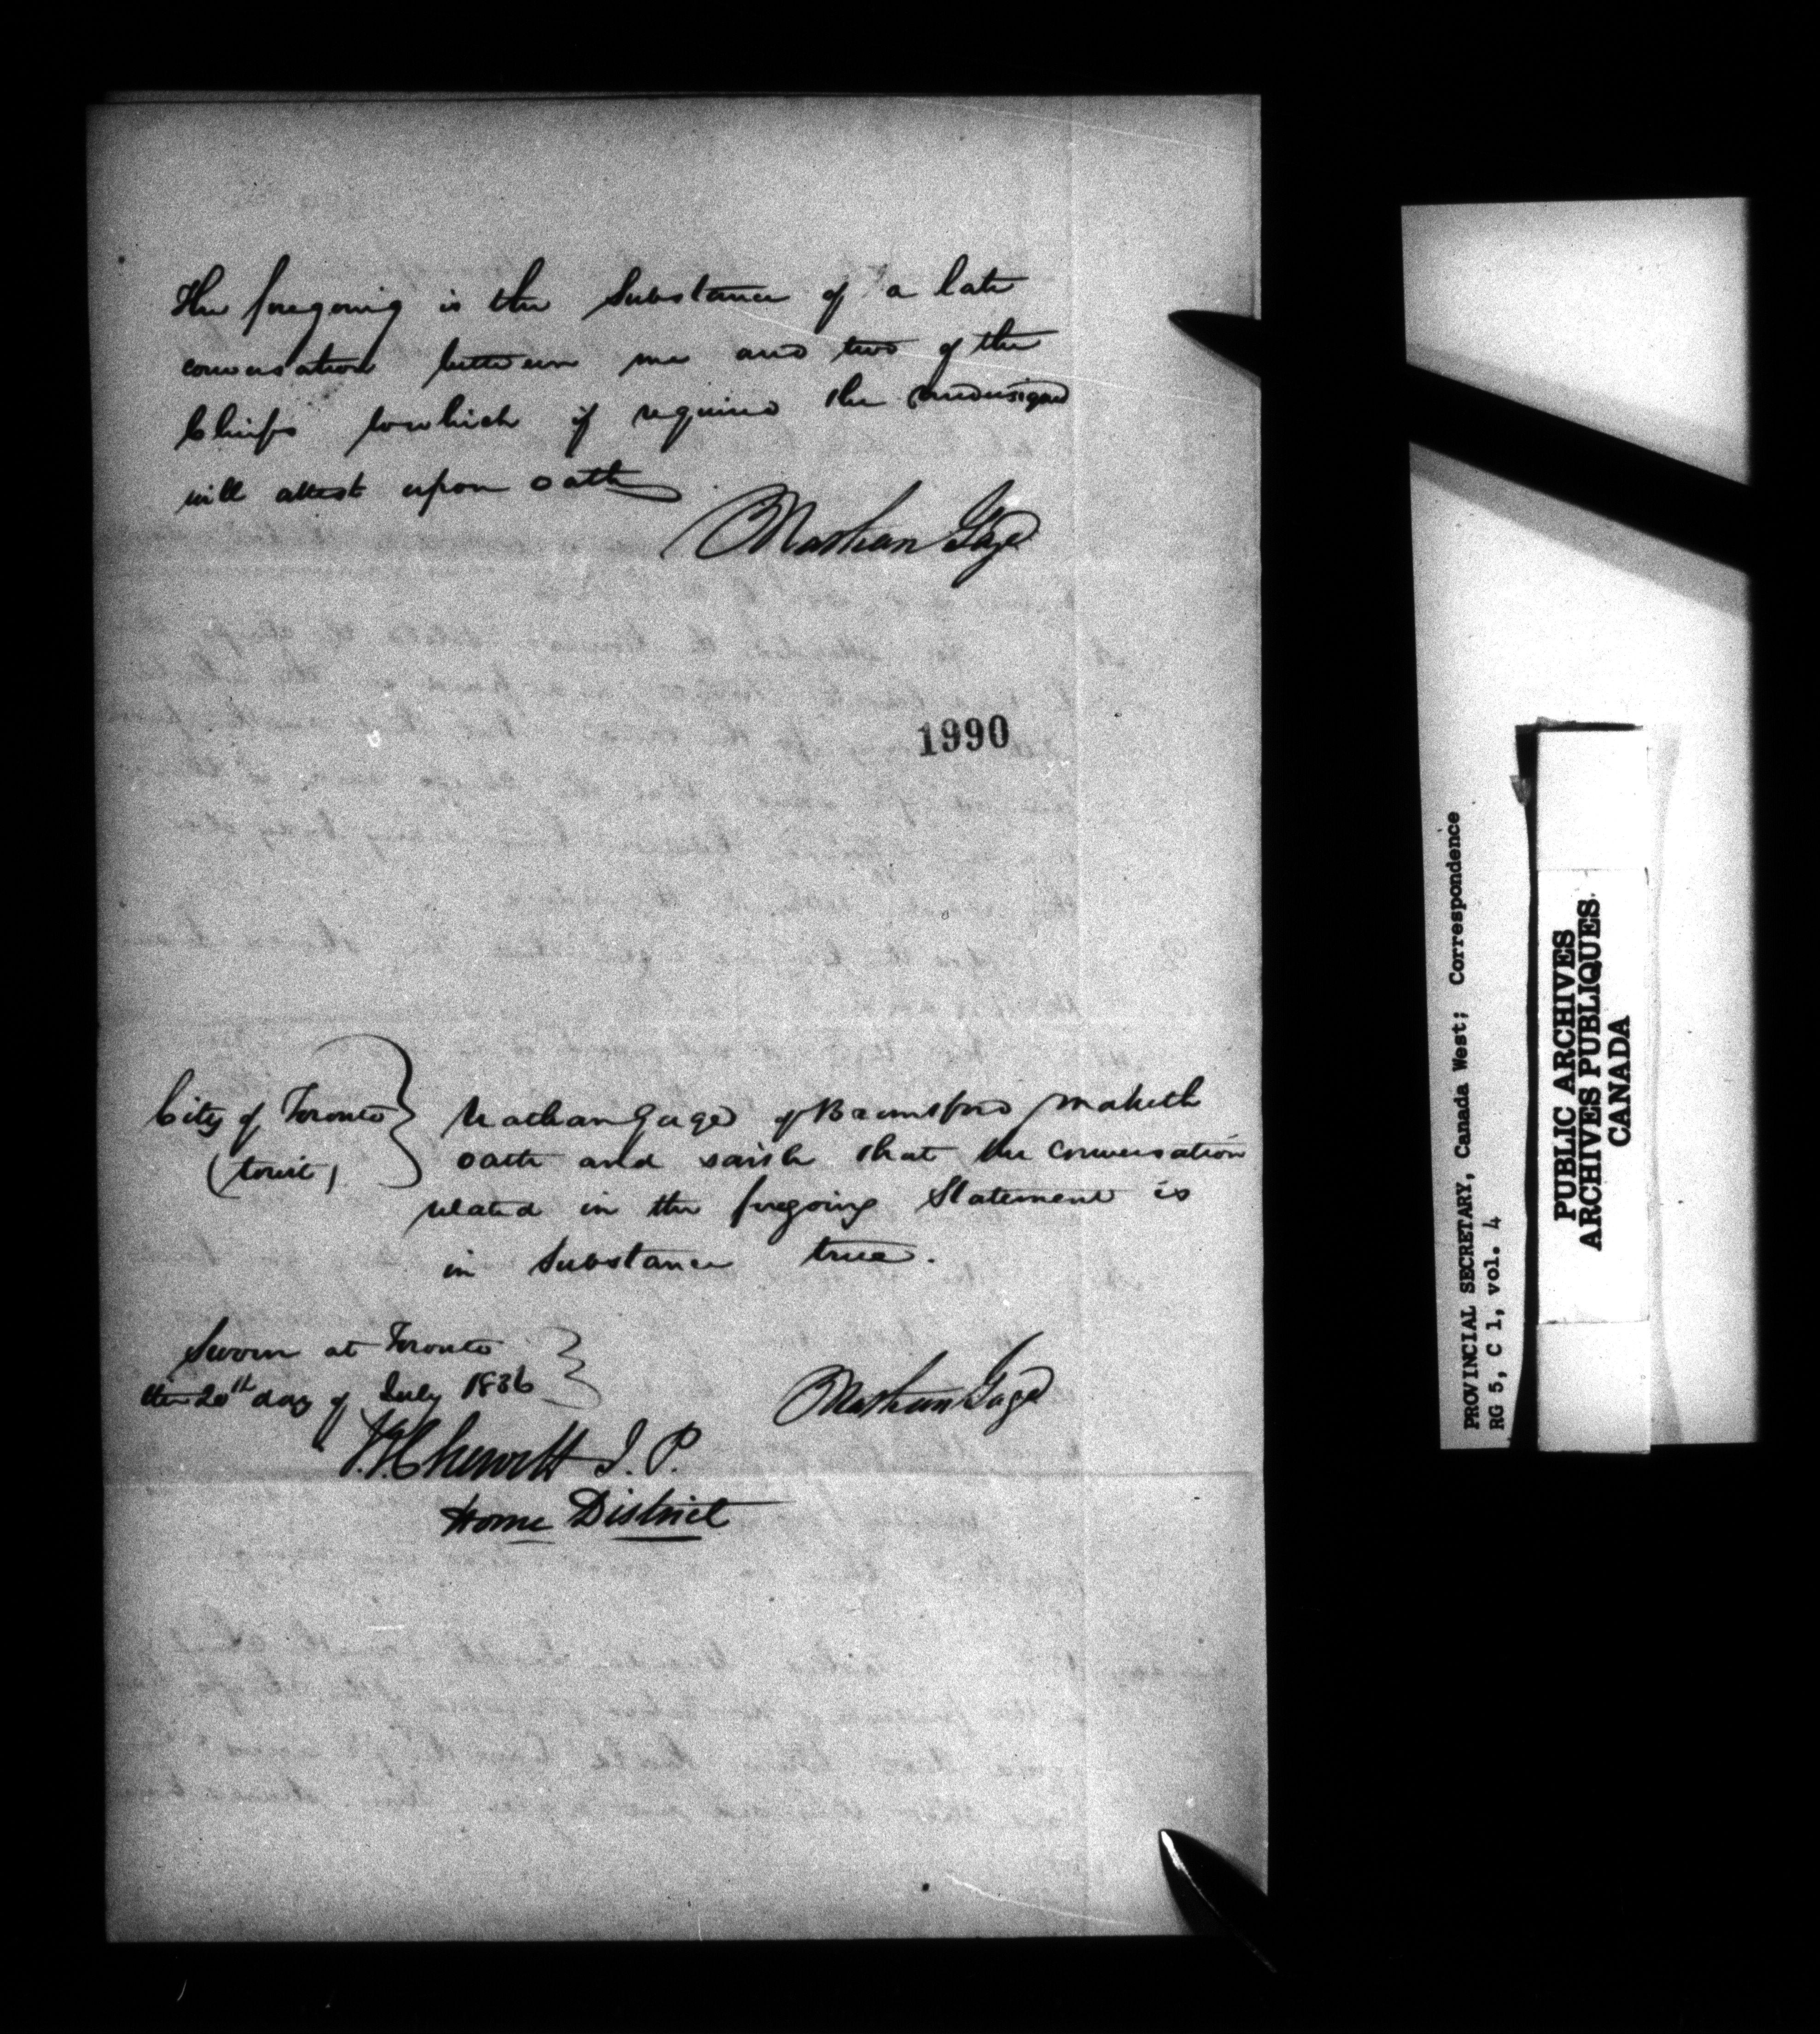 The foregoing is the Substance of a late
conversation between me and two of the
Chiefs to which if required the Undersigned
will attest upon oath
Nathan Gage
1990
City of Toronto
(to wit)
Nathan Gage of Brantford maketh
oath and saith that the conversation
related in the foregoing Statement is
in Substance true.
Sworn at Toronto
the 20th day of July 1836
Nathan Gage
J. G. Chewett J. P.
Home District
PROVINCIAL SECRETARY, Canada West; Correspondence
RG 5, C 1, vol. 4
PUBLIC ARCHIVES
ARCHIVES PUBLIQUES
CANADA